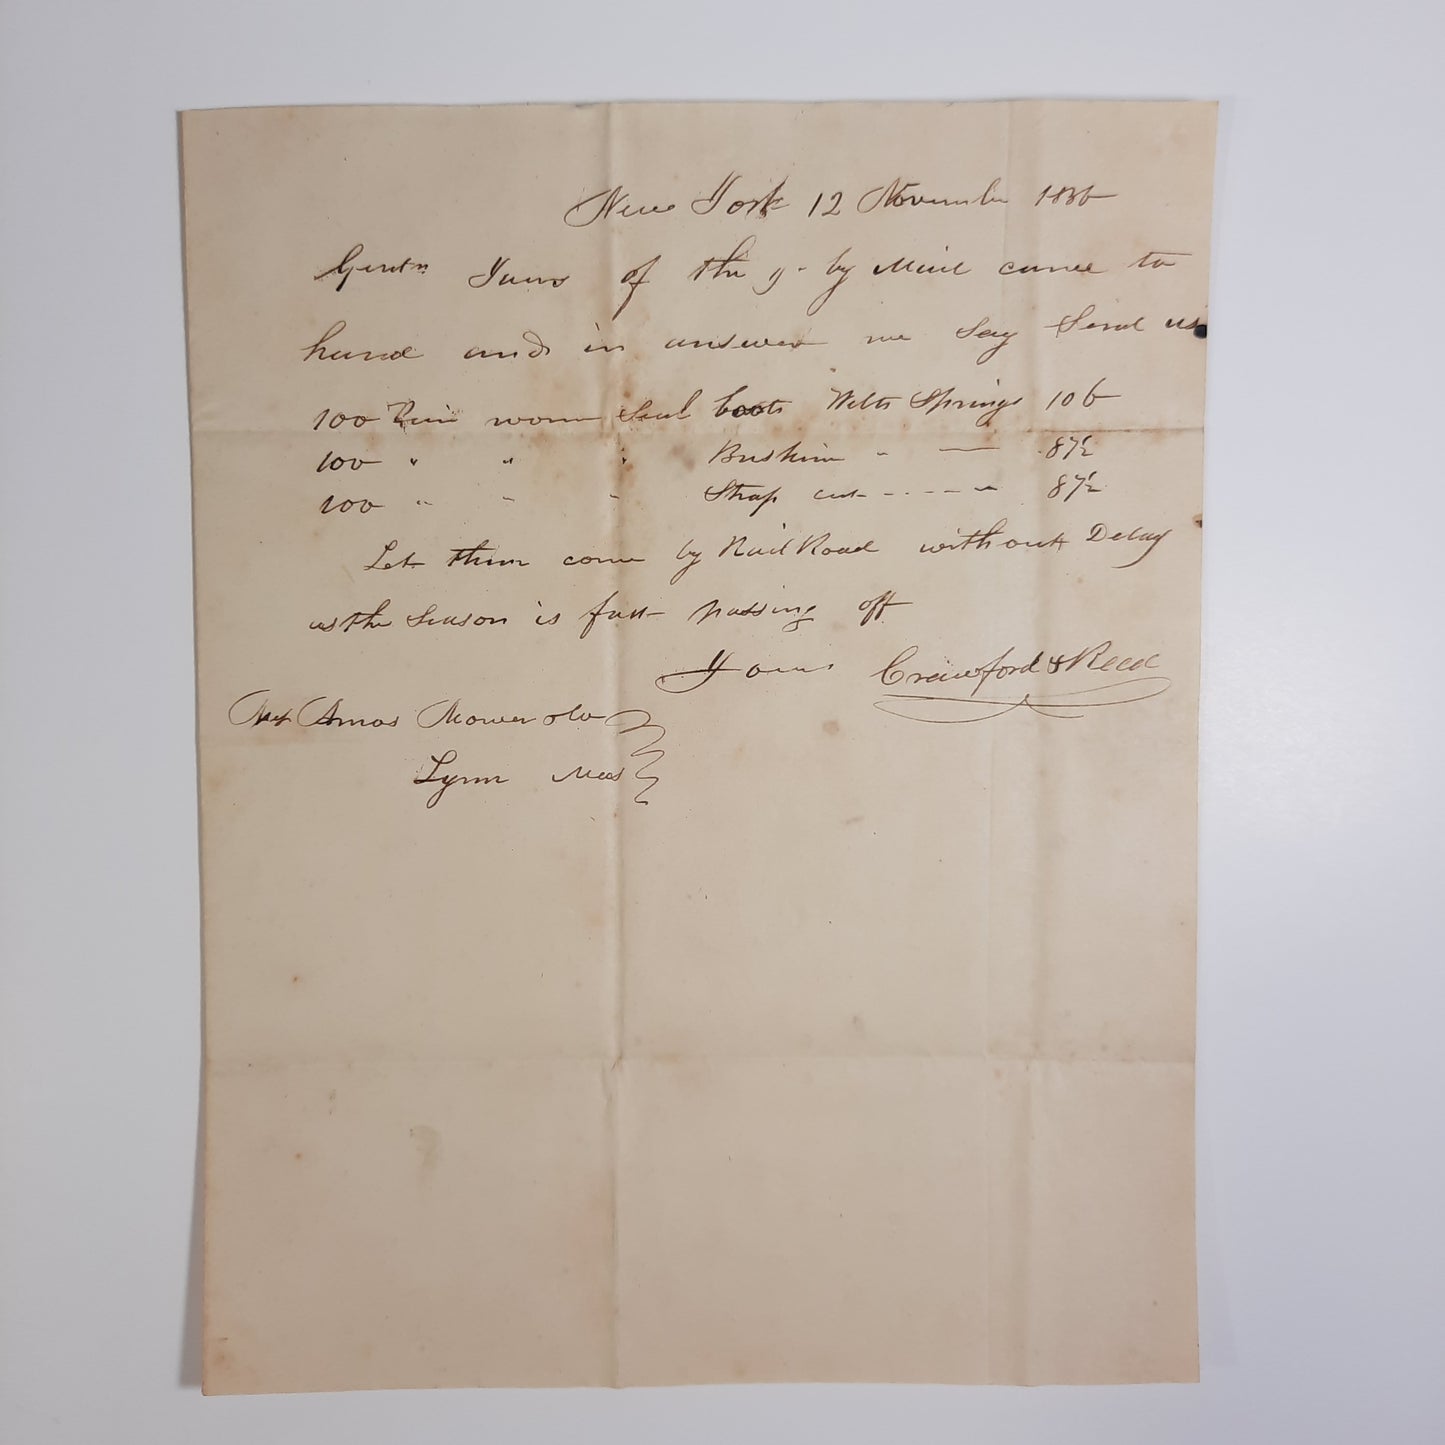 New York 12 November 1836
Gentn Yours of the 9 - by Mail came to
hand and in answer we Say Send us
100 Pair women Seal boots Welts Springs 106
100 " " " Buskins " — 87½
100 " " " Strap cut - - - - " 87½
Let them come by Rail Road without Delay
as the Season is fast passing off
Yours Crawford & Reed
Amos Mower & Co
Lynn Mass